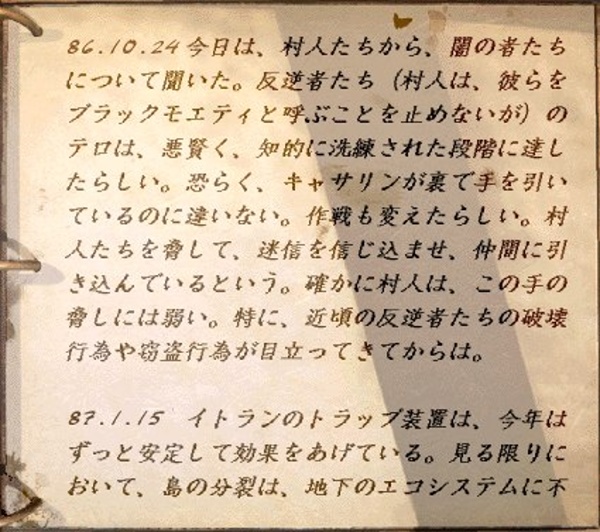 86.10.24 今日は、村人たちから、闇の者たち
について聞いた。反逆者たち（村人は、彼らを
ブラックモエティと呼ぶことを止めないが）の
テロは、悪賢く、知的に洗練された段階に達し
たらしい。恐らく、キャサリンが裏で手を引い
ているのに違いない。作戦も変えたらしい。村
人たちを脅して、迷信を信じ込ませ、仲間に引
き込んでいるという。確かに村人は、この手の
脅しには弱い。特に、近頃の反逆者たちの破壊
行為や窃盗行為が目立ってきてからは。
87.1.15 イトランのトラップ装置は、今年は
ずっと安定して効果をあげている。見る限りに
おいて、島の分裂は、地下のエコシステムに不